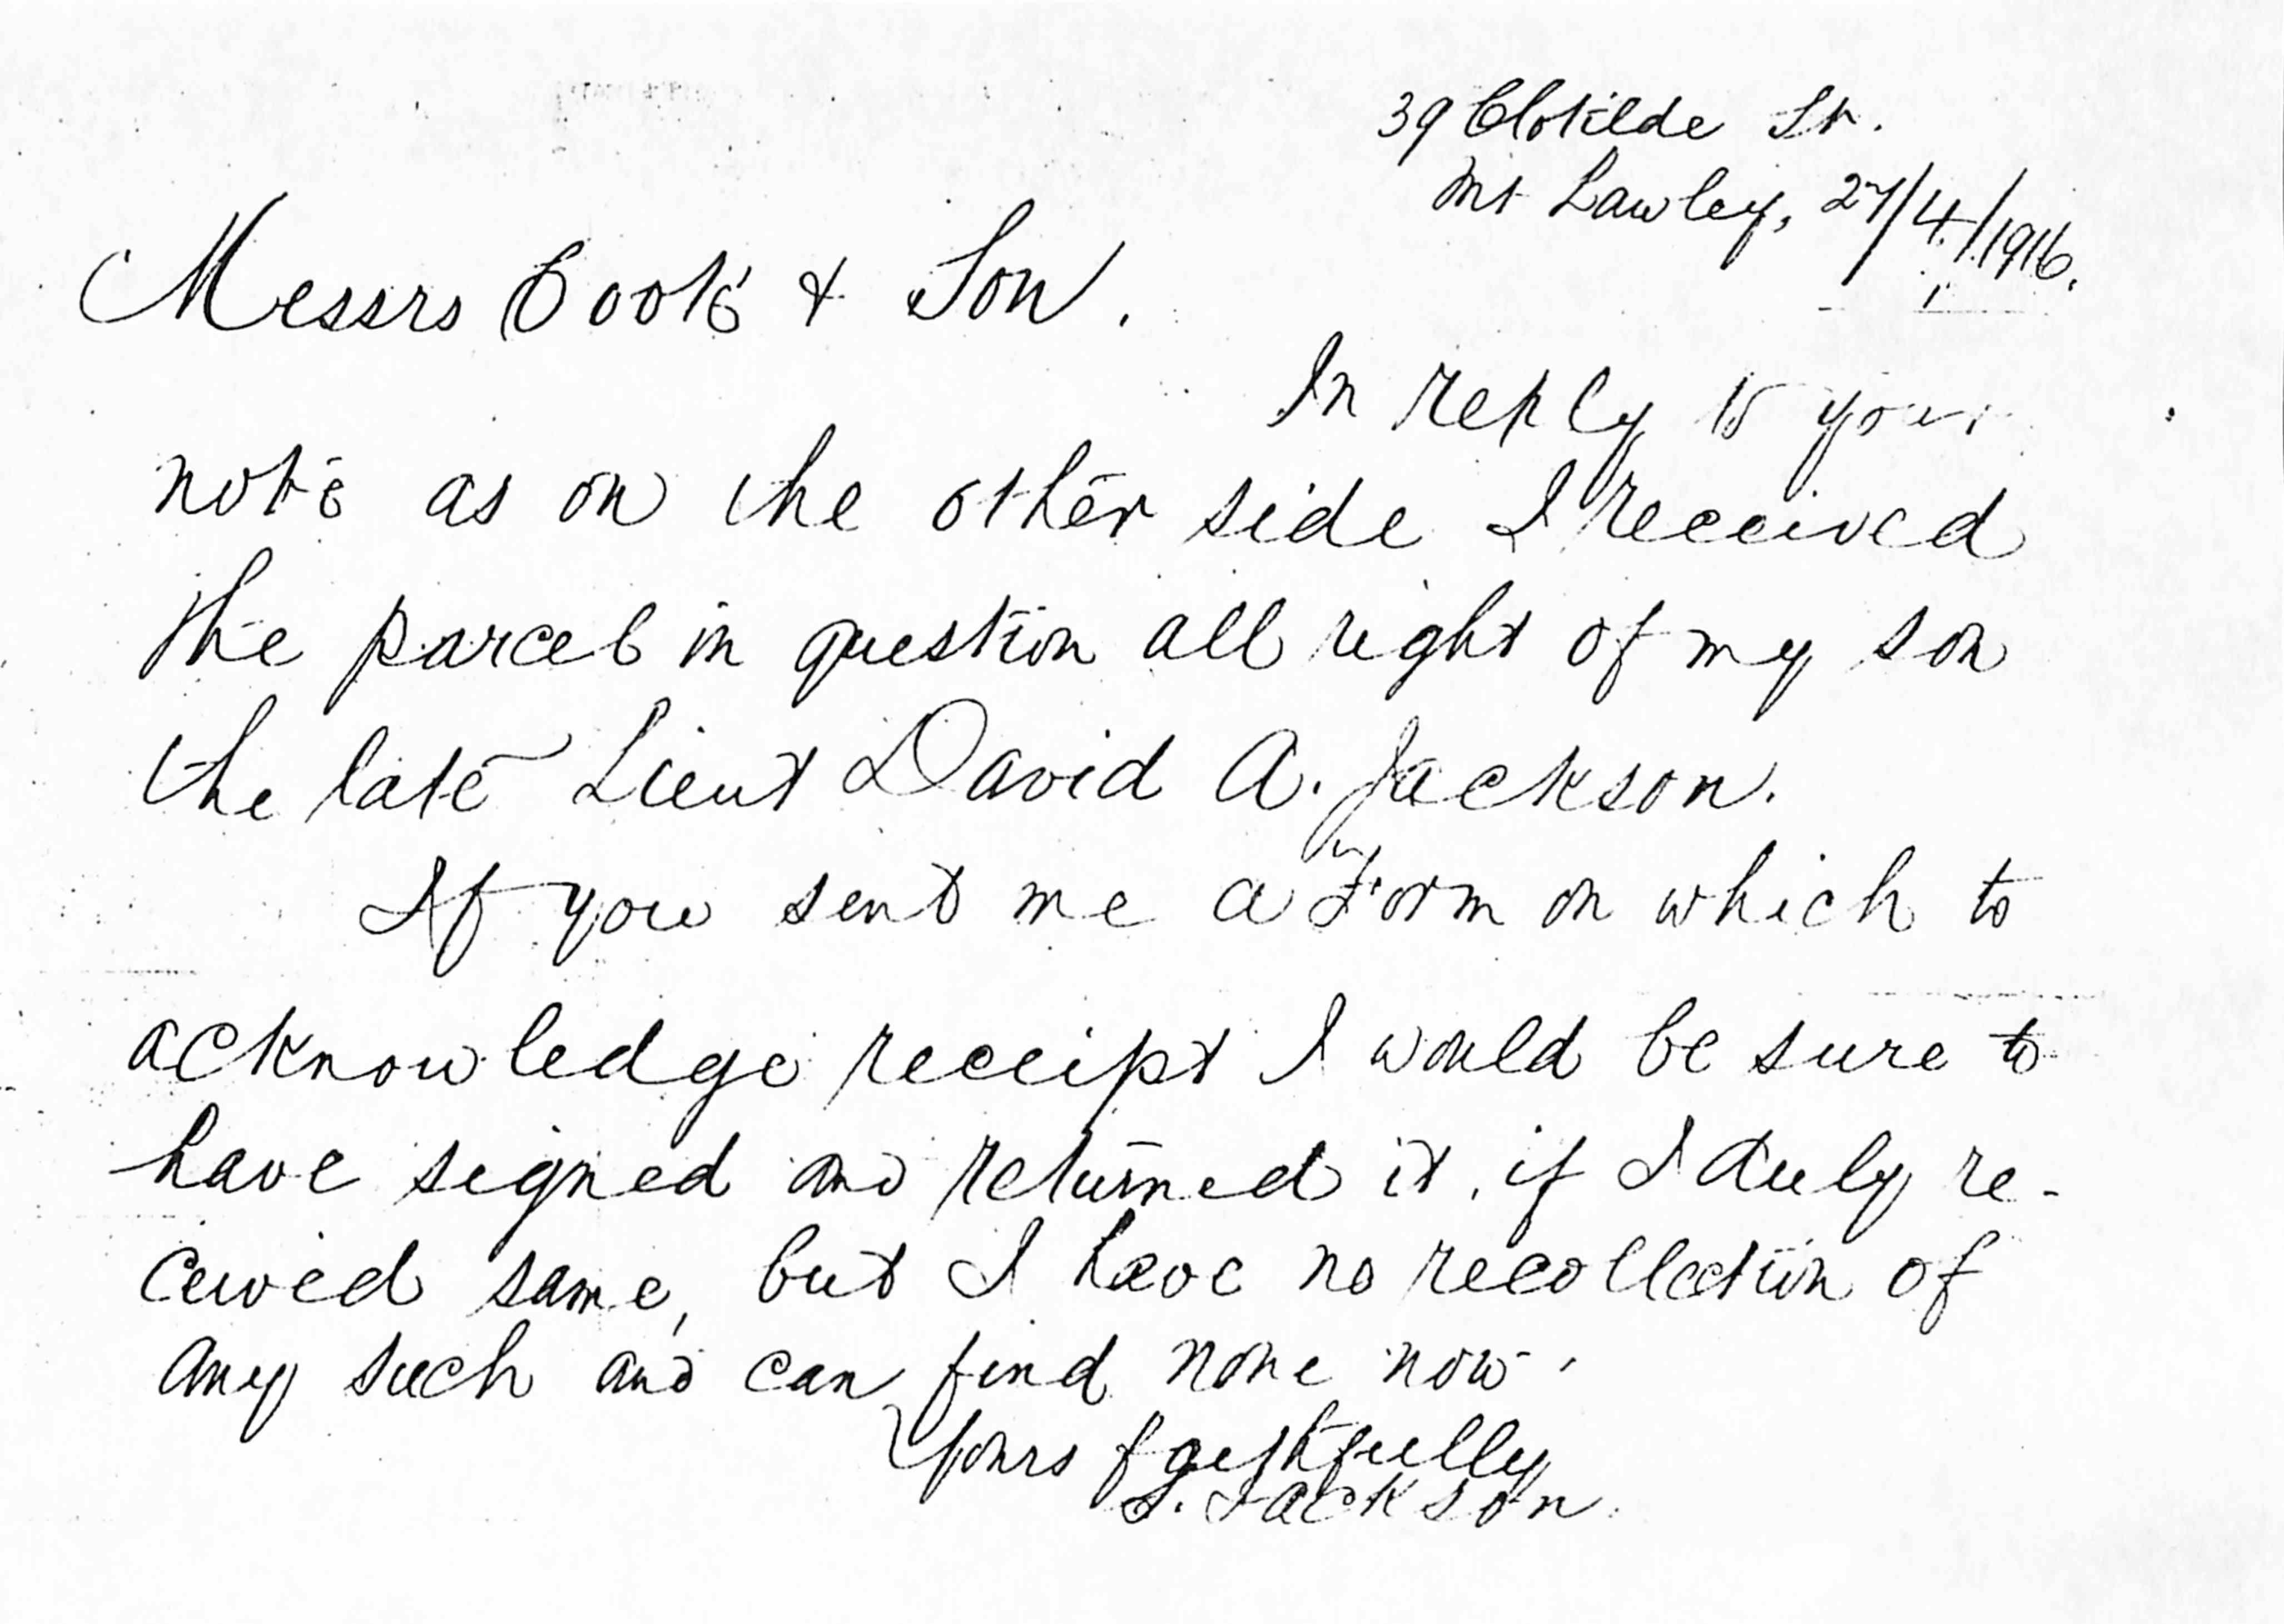 39 Clotilde St.
Mt Lawley, 27/4/1916.
Messrs Cook & Son.
In reply to your
note as on the other side I received
the parcel in question all right of my son
the late Lieut David A. Jackson.
If you sent me a Form on which to
acknowledge receipt I would be sure to
have signed and returned it, if I duly re-
ceived same, but I have no recollection of
any such and can find none now.
Yours faithfully
S. Jackson.